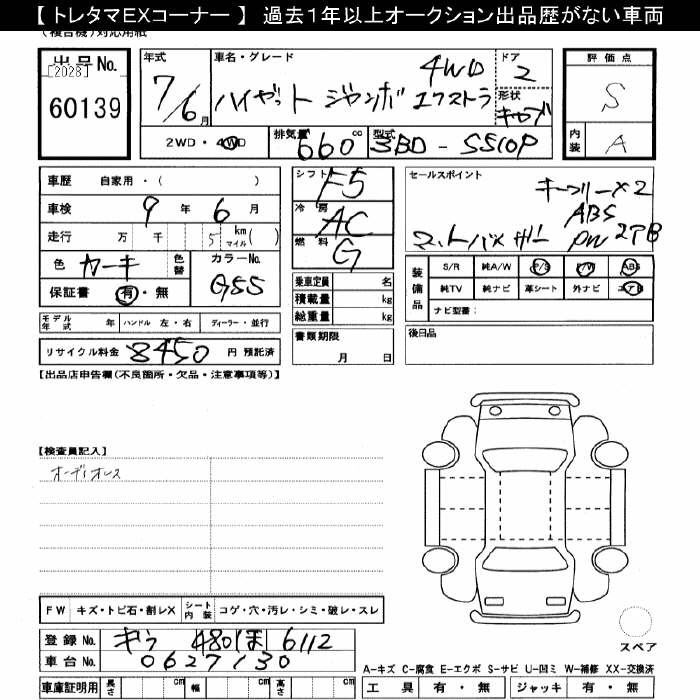 【 トレタマEXコーナー 】 過去1年以上オークション出品歴がない車両
(複合機)対応用紙
出品No.
[2028]
60139
年式
7/6月
車名・グレード
4WD
ハイゼット ジャンボ エクストラ
ドア
2
形状
キャブ
評価点
S
内装
A
2WD・4WD
排気量
660cc
型式
3BD-S510P
車歴 自家用・( )
車検 9年 6月
走行 万 千 5 km マイル( )
色 カーキ 色替 カラーNo.
G55
保証書 有・無
シフト
F5
冷房
AC
燃料
G
乗車定員 名
積載量 kg
総重量 kg
セールスポイント
キーフリー×2
ABS
マットバイザー PW 2TB
装備品
S/R 純A/W P/S P/W ABS
純TV 純ナビ 革シート 外ナビ エアB
ナビ型番:
モデル年式 年 ハンドル 左・右 ディーラー・並行
リサイクル料金 8450 円 預託済
書類期限
月 日
後日品
【出品店申告欄(不良箇所・欠品・注意事項等)】
【検査員記入】
オーディオレス
FW キズ・トビ石・割レX シート内装 コゲ・穴・汚レ・シミ・破レ・スレ
登録No. 480 6112
車台No. 0627130
スペア
A-キズ C-腐食 E-エクボ S-サビ U-凹ミ W-補修 XX-交換済
車庫証明用 長さ cm 幅 cm 高さ cm
工具 有・無 ジャッキ 有・無